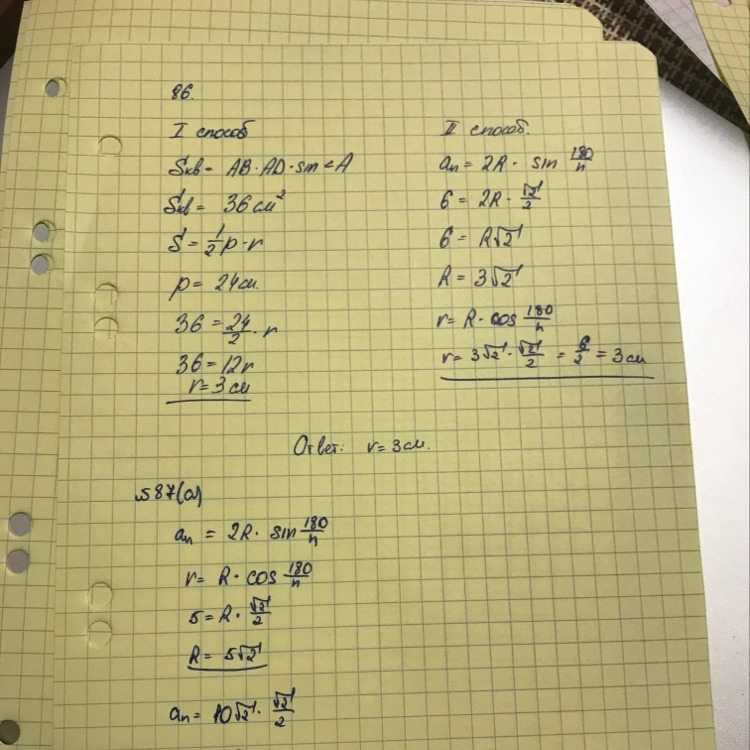 86.
I способ
Sкв = AB·AD·sin<A
Sкв = 36 см²
S = 1/2 p·r
p = 24 см.
36 = 24/2 · r
36 = 12r
r = 3 см
II способ.
an = 2R · sin 180/n
6 = 2R · √2/2
6 = R√2
R = 3√2
r = R · cos 180/n
r = 3√2 · √2/2 = 6/2 = 3 см
Ответ: r = 3 см.
587(a)
an = 2R · sin 180/n
r = R · cos 180/n
5 = R · √2/2
R = 5√2
an = 10√2 · √2/2